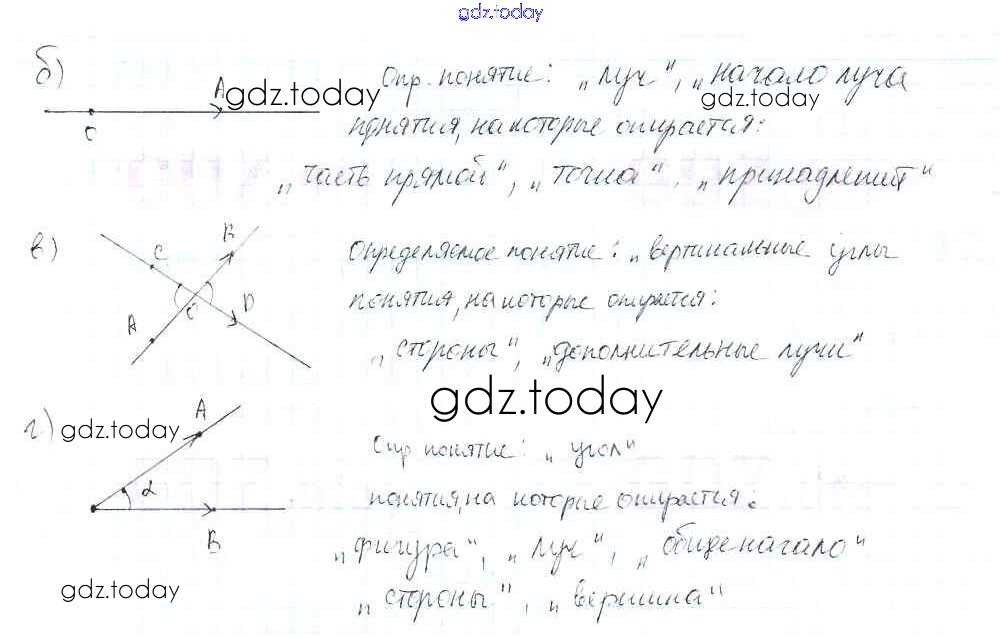 gdz.today
б)
Опр. понятие: „луч", „начало луча
A
gdz.today
gdz.today
O
понятия, на которые опирается:
„часть прямой", „точка", „принадлежит"
в)
B
C
Определяемое понятие: „вертикальные углы
O
D
понятия, на которые опирается:
A
„стороны", „дополнительные лучи"
gdz.today
г)
gdz.today
A
Опр понятие: „угол"
α
понятия, на которые опирается:
B
„фигура", „луч", „общее начало"
gdz.today
„стороны", „вершина"